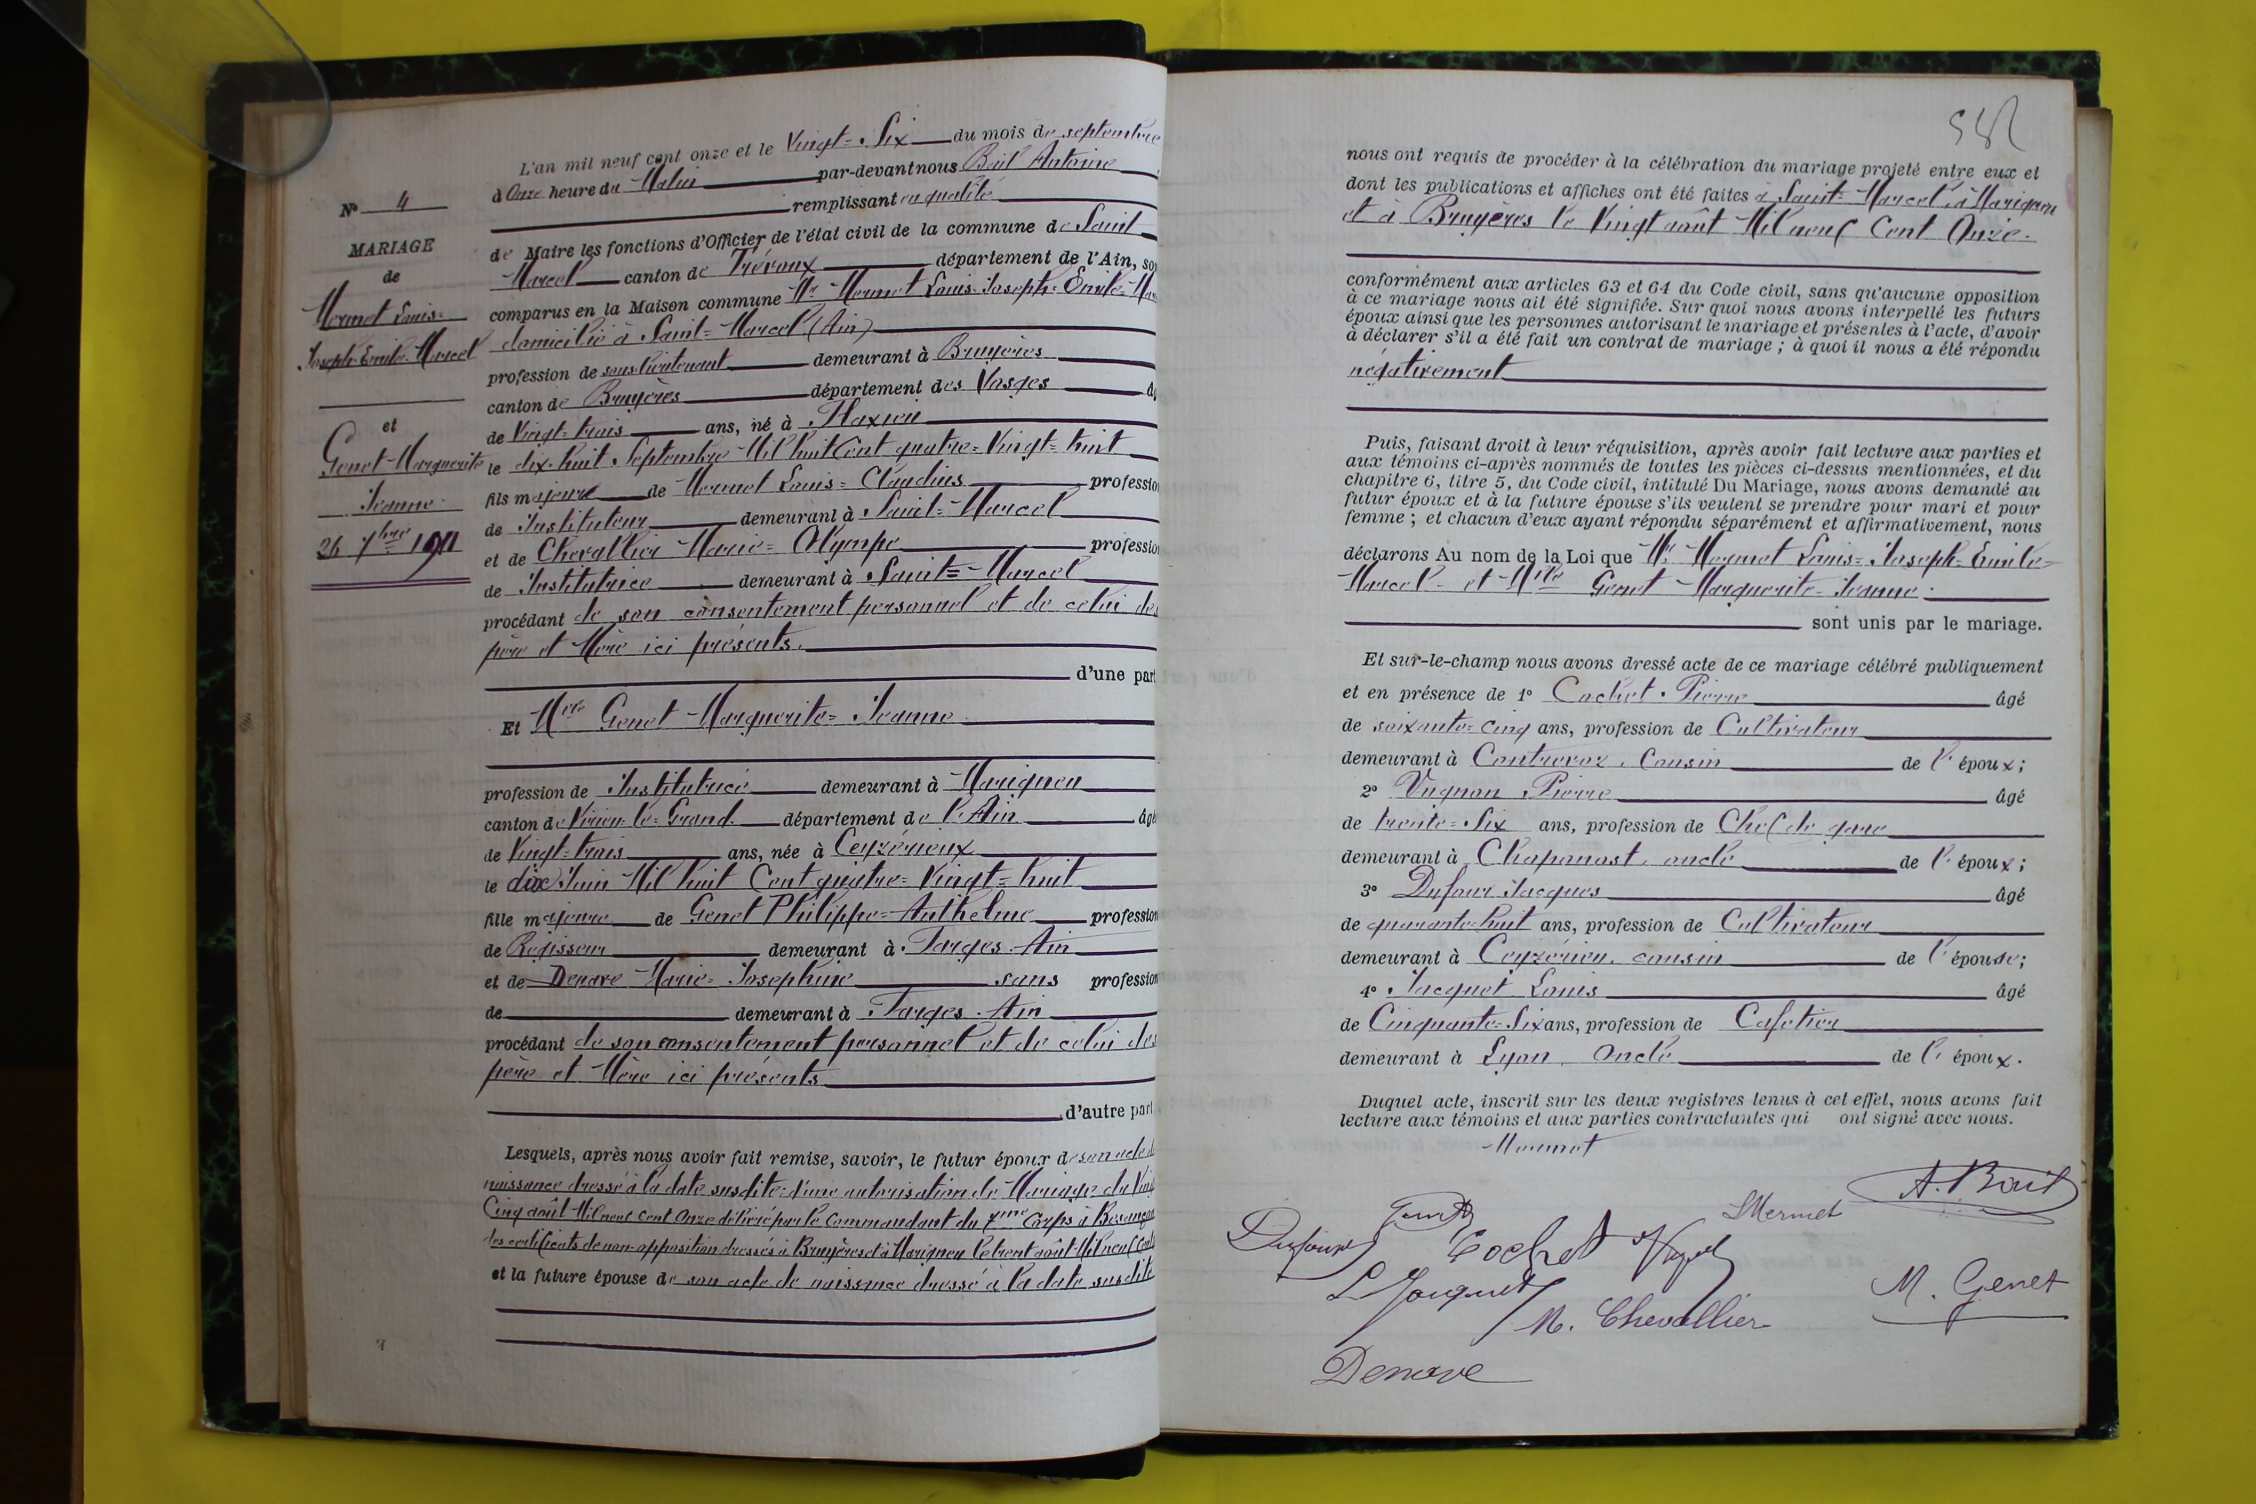 L'an mil neuf cent onze et le Vingt-Six du mois de septembre
à Onze heure du Matin par-devant nous Antoine
remplissant en qualité
de Maire les fonctions d'Officier de l'état civil de la commune de Saint
Marcel canton de Trévoux département de l'Ain, so
comparus en la Maison commune Mr Mermet Louis-Joseph-Emile-Mar
domicilié à Saint-Marcel (Ain)
profession de sous-lieutenant demeurant à Bruyères
canton de Bruyères département des Vosges
de Vingt-trois ans, né à Flaxieu
le dix-huit Septembre Mil huit Cent quatre-Vingt-huit
fils majeur de Mermet Louis-Claudius professio
de Instituteur demeurant à Saint-Marcel
et de Chevallier Marie-Olympe professio
de Institutrice demeurant à Saint-Marcel
procédant de son consentement personnel et de celui des
père et Mère ici présents.
d'une part
Et Melle Genet Marguerite-Jeanne
profession de Institutrice demeurant à Marignieu
canton de Virieu-le-Grand département de l'Ain âgé
de Vingt-trois ans, née à Ceyzérieux
le dix Juin Mil huit Cent quatre-Vingt-huit
fille majeure de Genet Philippe-Anthelme profession
de Régisseur demeurant à Farges-Ain
et de Denave Marie-Joséphine sans profession
de demeurant à Farges-Ain
procédant de son consentement personnel et de celui des
père et Mère ici présents
d'autre part
Lesquels, après nous avoir fait remise, savoir, le futur époux de son acte de
naissance dressé à la date susdite-d'une autorisation de Mariage du Vin
Cinq août Mil neuf cent Onze délivré par le Commandant du 7me Corps à Besançon
des certificats de non-opposition dressés à Bruyères et à Marignieu le trent août Mil neuf Cent
et la future épouse de son acte de naissance dressé à la date susdite
N° 4
MARIAGE
de
Mermet Louis-
Joseph-Emile-Marcel
et
Genet Marguerite
Jeanne
26 7bre 1911
nous ont requis de procéder à la célébration du mariage projeté entre eux et
dont les publications et affiches ont été faites à Saint-Marcel, à Marignieu
et à Bruyères le Vingt août Mil neuf Cent Onze.
conformément aux articles 63 et 64 du Code civil, sans qu'aucune opposition
à ce mariage nous ait été signifiée. Sur quoi nous avons interpellé les futurs
époux ainsi que les personnes autorisant le mariage et présentes à l'acte, d'avoir
à déclarer s'il a été fait un contrat de mariage ; à quoi il nous a été répondu
négativement
Puis, faisant droit à leur réquisition, après avoir fait lecture aux parties et
aux témoins ci-après nommés de toutes les pièces ci-dessus mentionnées, et du
chapitre 6, titre 5, du Code civil, intitulé Du Mariage, nous avons demandé au
futur époux et à la future épouse s'ils veulent se prendre pour mari et pour
femme ; et chacun d'eux ayant répondu séparément et affirmativement, nous
déclarons Au nom de la Loi que Mr Mermet Louis-Joseph-Emile-
Marcel et Melle Genet Marguerite-Jeanne
sont unis par le mariage.
Et sur-le-champ nous avons dressé acte de ce mariage célébré publiquement
et en présence de 1° Cochet Pierre âgé
de soixante-cinq ans, profession de Cultivateur
demeurant à Contrevoz, Cousin de l'époux;
2° Vugnon Pierre âgé
de trente-Six ans, profession de Chef de gare
demeurant à Chaponost, oncle de l'époux;
3° Dufour Jacques âgé
de quarante-huit ans, profession de Cultivateur
demeurant à Ceyzérieu, cousin de l'épouse;
4° Jacquet Louis âgé
de Cinquante-Six ans, profession de Cafetier
demeurant à Lyon, Oncle de l'époux.
Duquel acte, inscrit sur les deux registres tenus à cet effet, nous avons fait
lecture aux témoins et aux parties contractantes qui ont signé avec nous.
Mermet
LMermet
Dufour
Cochet
L Jacquet
M. Genet
M. Chevallier
Denave